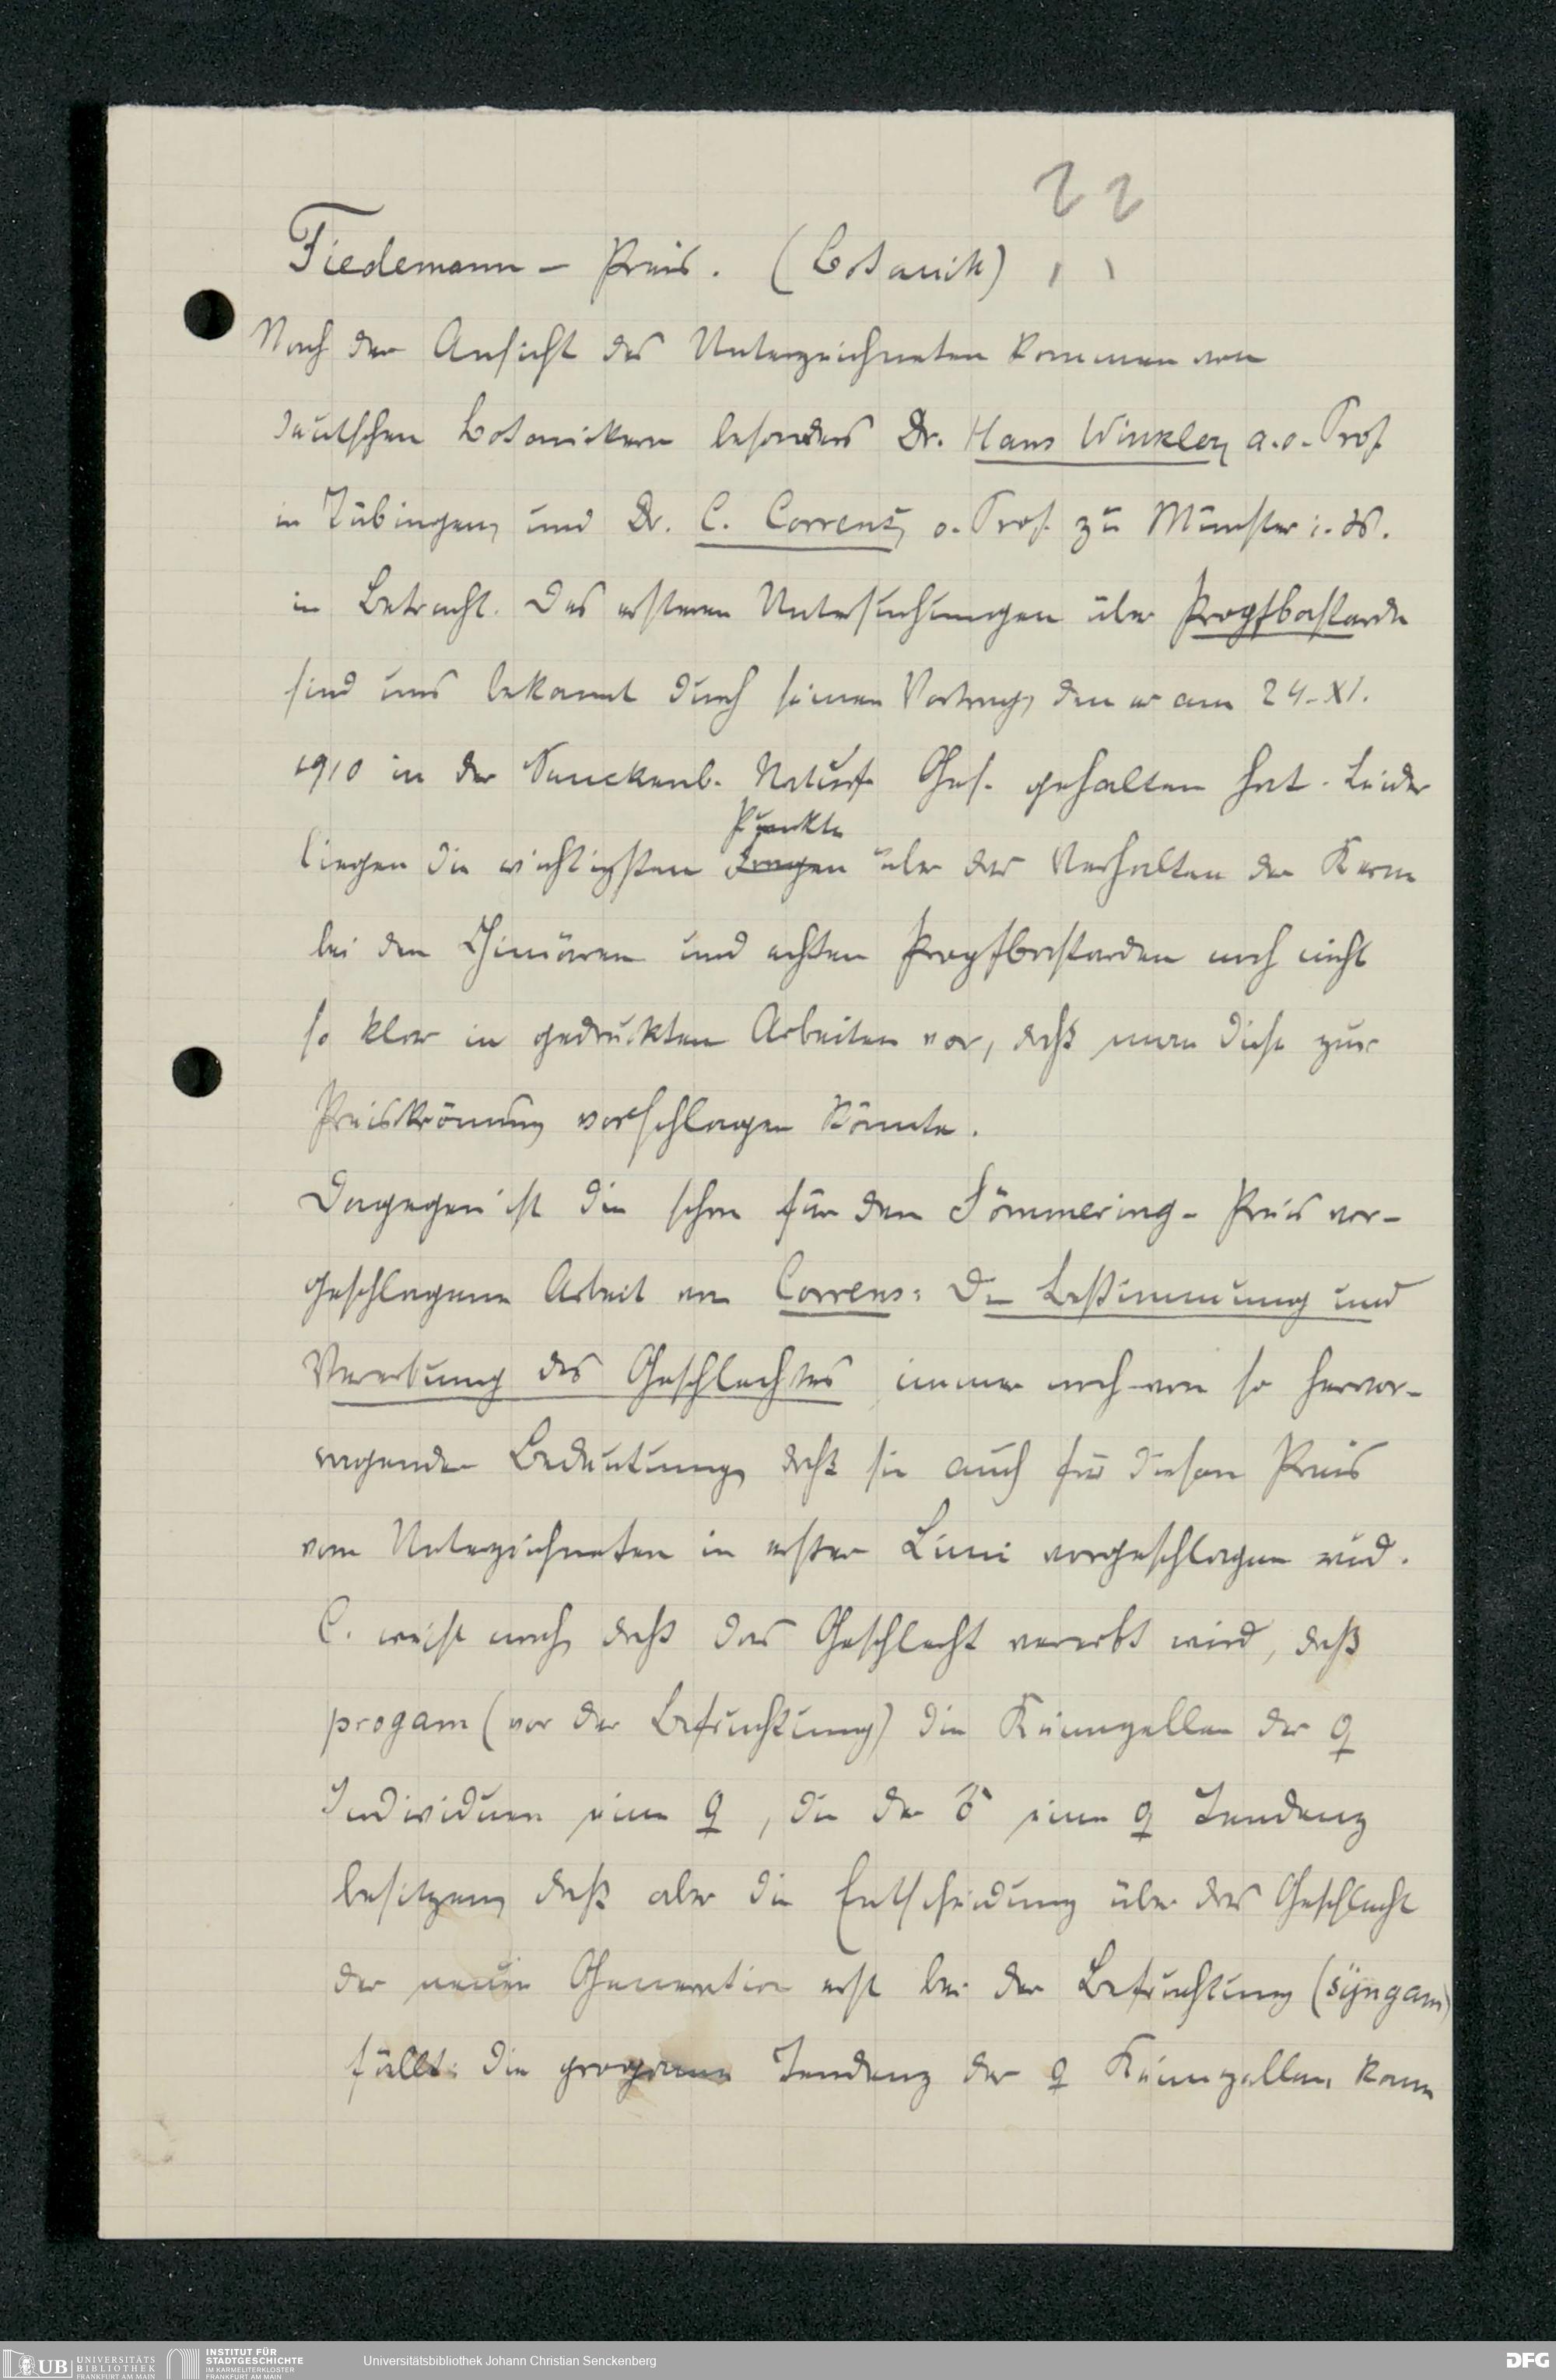 22
Tiedemann-Preis. (Botanik)
Nach der Ansicht des Unterzeichneten kommen von
deutschen Botanickern besonders Dr. Hans Winkler, a.o. Prof.
in Tübingen, und Dr. C. Correns, o. Prof. zu Münster i. W.
in Betracht. Des ersteren Untersuchungen über Propfbastarde
sind uns bekannt durch seinen Vortrag, den er am 24. XI.
1910 in der Senckenb. Naturf. Ges. gehalten hat. Leider
Punkte
liegen die wichtigsten Fragen über das Verhalten der Kerne
bei den Chimären und echten Propfbastarden noch nicht
so klar in gedruckten Arbeiten vor, daß man diese zur
Preiskrönung vorschlagen könnte.
Dagegen ist die schon für den Sömmering-Preis vor-
geschlagene Arbeit von Correns: Die Bestimmung und
Vererbung des Geschlechtes immer noch von so hervor-
ragender Bedeutung, daß sie auch für diesen Preis
vom Unterzeichneten in erster Linie vorgeschlagen wird.
C. weist nach, daß das Geschlecht vererbt wird, daß
progam (vor der Befruchtung) die Keimzellen der ♀
Individuen eine ♀, die der ♂ eine ♀ Tendenz
besitzen, daß aber die Entscheidung über das Geschlecht
der neuen Generation erst bei der Befruchtung (syngam)
fällt: die progame Tendenz der ♀ Keimzellen kann
UB UNIVERSITÄTS BIBLIOTHEK FRANKFURT AM MAIN
INSTITUT FÜR STADTGESCHICHTE IM KARMELITERKLOSTER FRANKFURT AM MAIN
Universitätsbibliothek Johann Christian Senckenberg
DFG